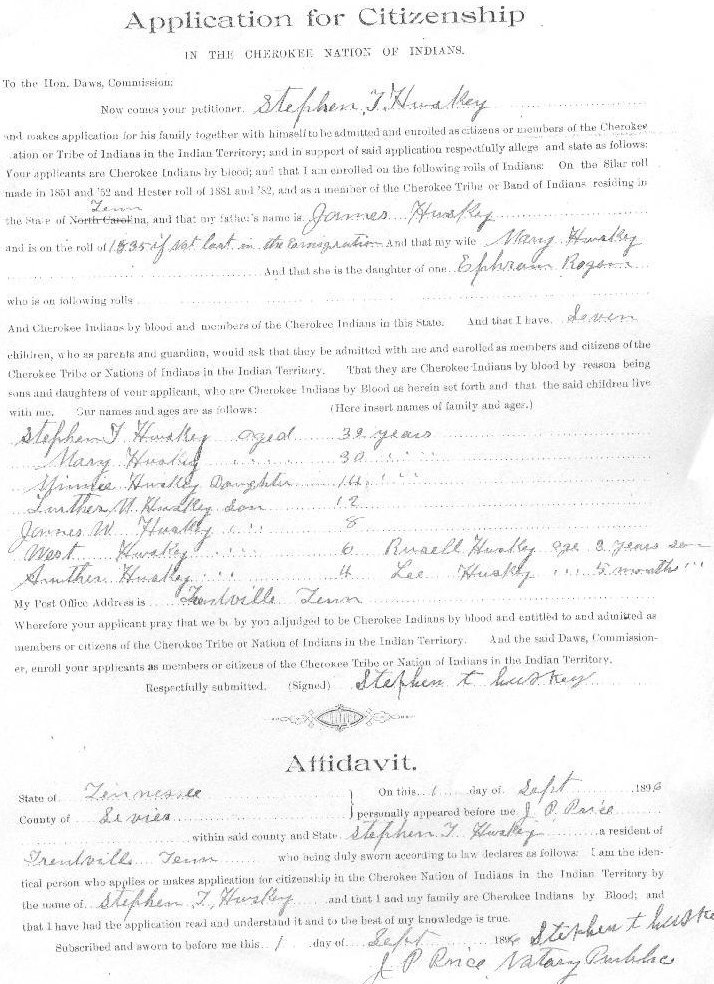 Application for Citizenship
IN THE CHEROKEE NATION OF INDIANS.
To the Hon. Daws, Commission:
Now comes your petitioner, Stephen T. Huskey
and makes application for his family together with himself to be admitted and enrolled as citizens or members of the Cherokee
ation or Tribe of Indians in the Indian Territory; and in support of said application respectfully allege and state as follows:
Your applicants are Cherokee Indians by blood; and that I am enrolled on the following rolls of Indians: On the Silar roll
made in 1851 and '52 and Hester roll of 1881 and '82, and as a member of the Cherokee Tribe or Band of Indians residing in
Tenn
the State of North Carolina, and that my father's name is James Huskey
and is on the roll of 1835 if not lost in the Emigration And that my wife Mary Huskey
And that she is the daughter of one Ephraim
who is on following rolls
And Cherokee Indians by blood and members of the Cherokee Indians in this State. And that I have Seven
children, who as parents and guardian, would ask that they be admitted with me and enrolled as members and citizens of the
Cherokee Tribe or Nations of Indians in the Indian Territory. That they are Cherokee Indians by blood by reason being
sons and daughters of your applicant, who are Cherokee Indians by Blood as herein set forth and that the said children live
with me. Our names and ages are as follows: (Here insert names of family and ages.)
Stephen T Huskey aged 39 years
Mary Huskey 30
Huskey Daughter 14
Luther Huskey Son 12
James W. Huskey 8
West Huskey 6 Russell Huskey age 2 years son
Huskey 4 Lee Huskey 5 months
My Post Office Address is Trentville Tenn
Wherefore your applicant pray that we be by you adjudged to be Cherokee Indians by blood and entitled to and admitted as
members or citizens of the Cherokee Tribe or Nation of Indians in the Indian Territory. And the said Daws, Commission-
er, enroll your applicants as members or citizens of the Cherokee Tribe or Nation of Indians in the Indian Territory.
Respectfully submitted. (Signed) Stephen t huskey
Affidavit.
State of Tennessee } On this 1 day of Sept 1896
County of Sevier } personally appeared before me J P Price
within said county and State Stephen T Huskey a resident of
Trentville Tenn who being duly sworn according to law declares as follows: I am the iden-
tical person who applies or makes application for citizenship in the Cherokee Nation of Indians in the Indian Territory by
the name of Stephen T. Huskey and that I and my family are Cherokee Indians by Blood; and
that I have had the application read and understand it and to the best of my knowledge is true.
Subscribed and sworn to before me this 1 day of Sept 1896 Stephen t huske
J P Price Notary Public